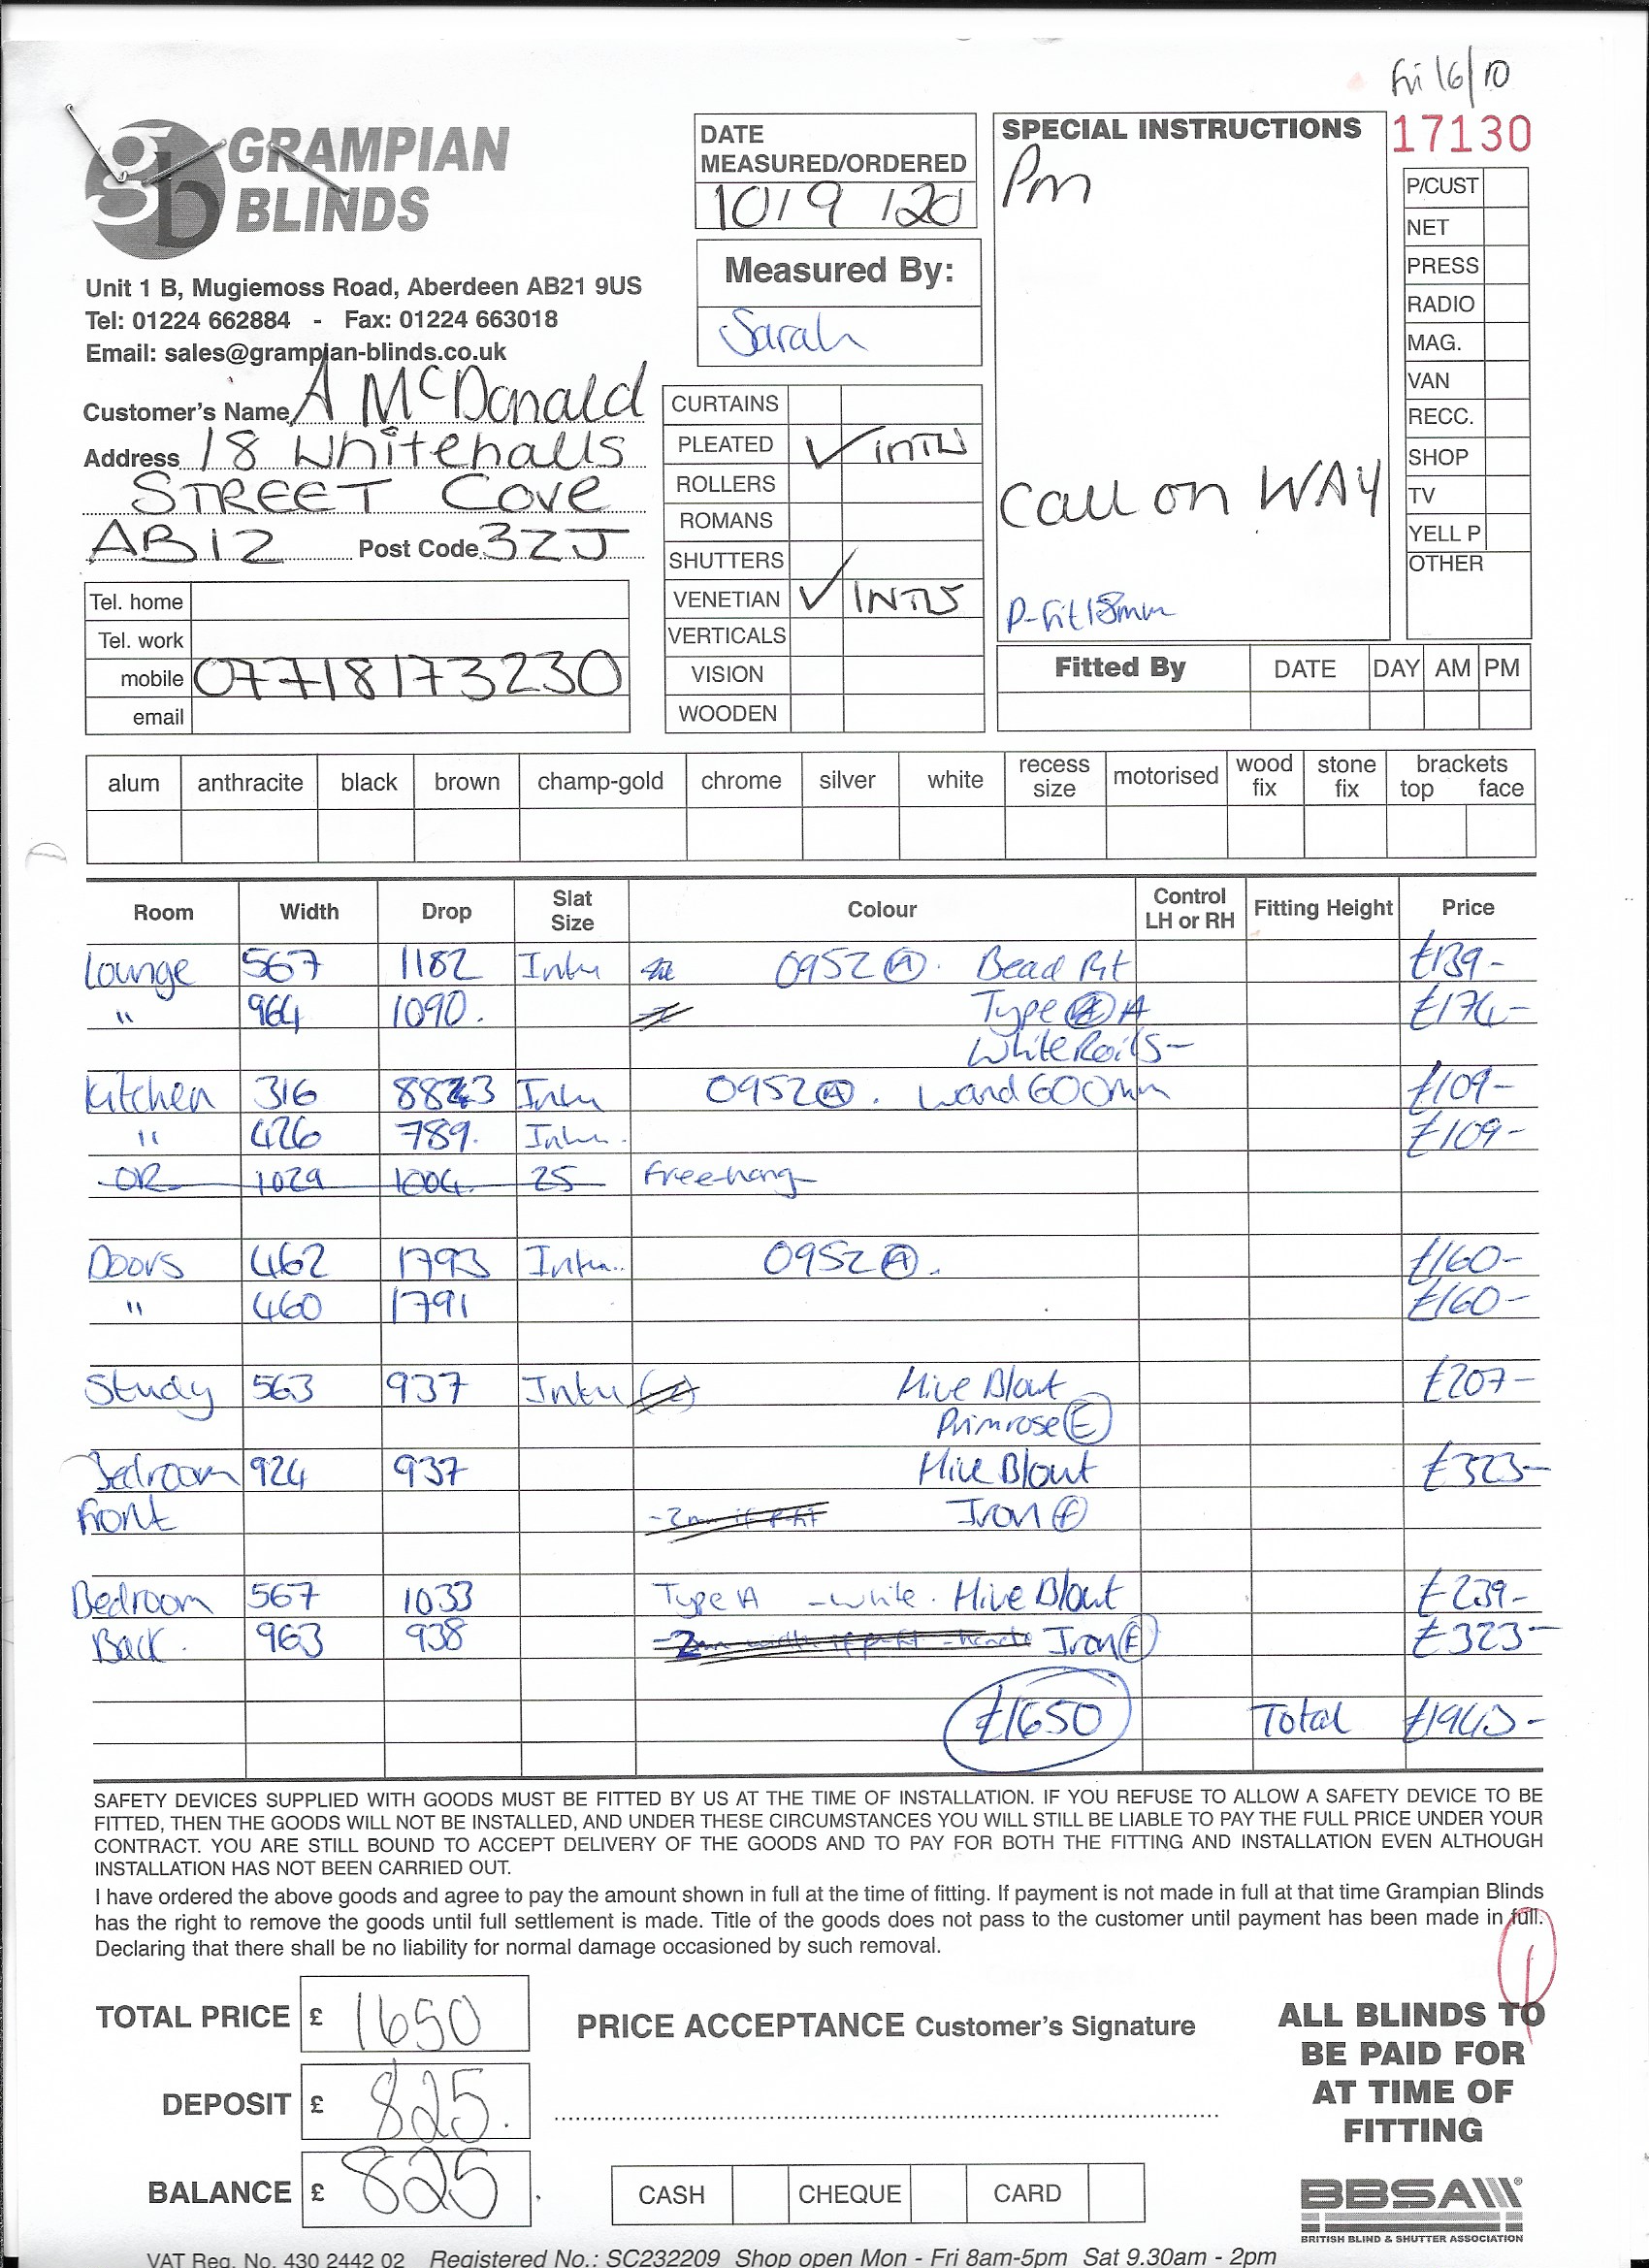 Fri 16/10
GRAMPIAN
BLINDS
Unit 1 B, Mugiemoss Road, Aberdeen AB21 9US
Tel: 01224 662884 - Fax: 01224 663018
Email: sales@grampian-blinds.co.uk
Customer's Name A McDonald
Address 18 Whitehalls
STREET Cove
AB12 Post Code 3ZJ
Tel. home
Tel. work
mobile 07718173230
email
DATE
MEASURED/ORDERED
10/9/20
Measured By:
Sarah
CURTAINS
PLEATED ✓ INTU
ROLLERS
ROMANS
SHUTTERS
VENETIAN ✓ INTU
VERTICALS
VISION
WOODEN
SPECIAL INSTRUCTIONS
Pm
Call on WAY
P-Fit 18mm
17130
P/CUST
NET
PRESS
RADIO
MAG.
VAN
RECC.
SHOP
TV
YELL P
OTHER
Fitted By DATE DAY AM PM
alum anthracite black brown champ-gold chrome silver white recess size motorised wood fix stone fix brackets top face
Room Width Drop Slat Size Colour Control LH or RH Fitting Height Price
Lounge 567 1182 Intu 0952 (A). Bead Fit £139-
" 964 1090. Type A £174-
White Rails-
Kitchen 316 883 Intu 0952 (A). Wand 600mm £109-
" 426 789. Intu. £109-
OR 1029 1004 25 Freehang
Doors 462 1793 Intu.. 0952 (A). £160-
" 460 1791 £160-
Study 563 937 Intu Hive Blout £207-
Primrose (E)
Bedroom 924 937 Hive Blout £323-
Front -2mm if p-fit Iron (E)
Bedroom 567 1033 Type A -white. Hive Blout £239-
Back. 963 938 Iron (E) £323-
£1650 Total £1943-
SAFETY DEVICES SUPPLIED WITH GOODS MUST BE FITTED BY US AT THE TIME OF INSTALLATION. IF YOU REFUSE TO ALLOW A SAFETY DEVICE TO BE
FITTED, THEN THE GOODS WILL NOT BE INSTALLED, AND UNDER THESE CIRCUMSTANCES YOU WILL STILL BE LIABLE TO PAY THE FULL PRICE UNDER YOUR
CONTRACT. YOU ARE STILL BOUND TO ACCEPT DELIVERY OF THE GOODS AND TO PAY FOR BOTH THE FITTING AND INSTALLATION EVEN ALTHOUGH
INSTALLATION HAS NOT BEEN CARRIED OUT.
I have ordered the above goods and agree to pay the amount shown in full at the time of fitting. If payment is not made in full at that time Grampian Blinds
has the right to remove the goods until full settlement is made. Title of the goods does not pass to the customer until payment has been made in full.
Declaring that there shall be no liability for normal damage occasioned by such removal.
TOTAL PRICE £ 1650
DEPOSIT £ 825.
BALANCE £ 825
PRICE ACCEPTANCE Customer's Signature
CASH CHEQUE CARD
1
ALL BLINDS TO
BE PAID FOR
AT TIME OF
FITTING
BBSA
BRITISH BLIND & SHUTTER ASSOCIATION
VAT Reg. No. 430 2442 02 Registered No.: SC232209 Shop open Mon - Fri 8am-5pm Sat 9.30am - 2pm